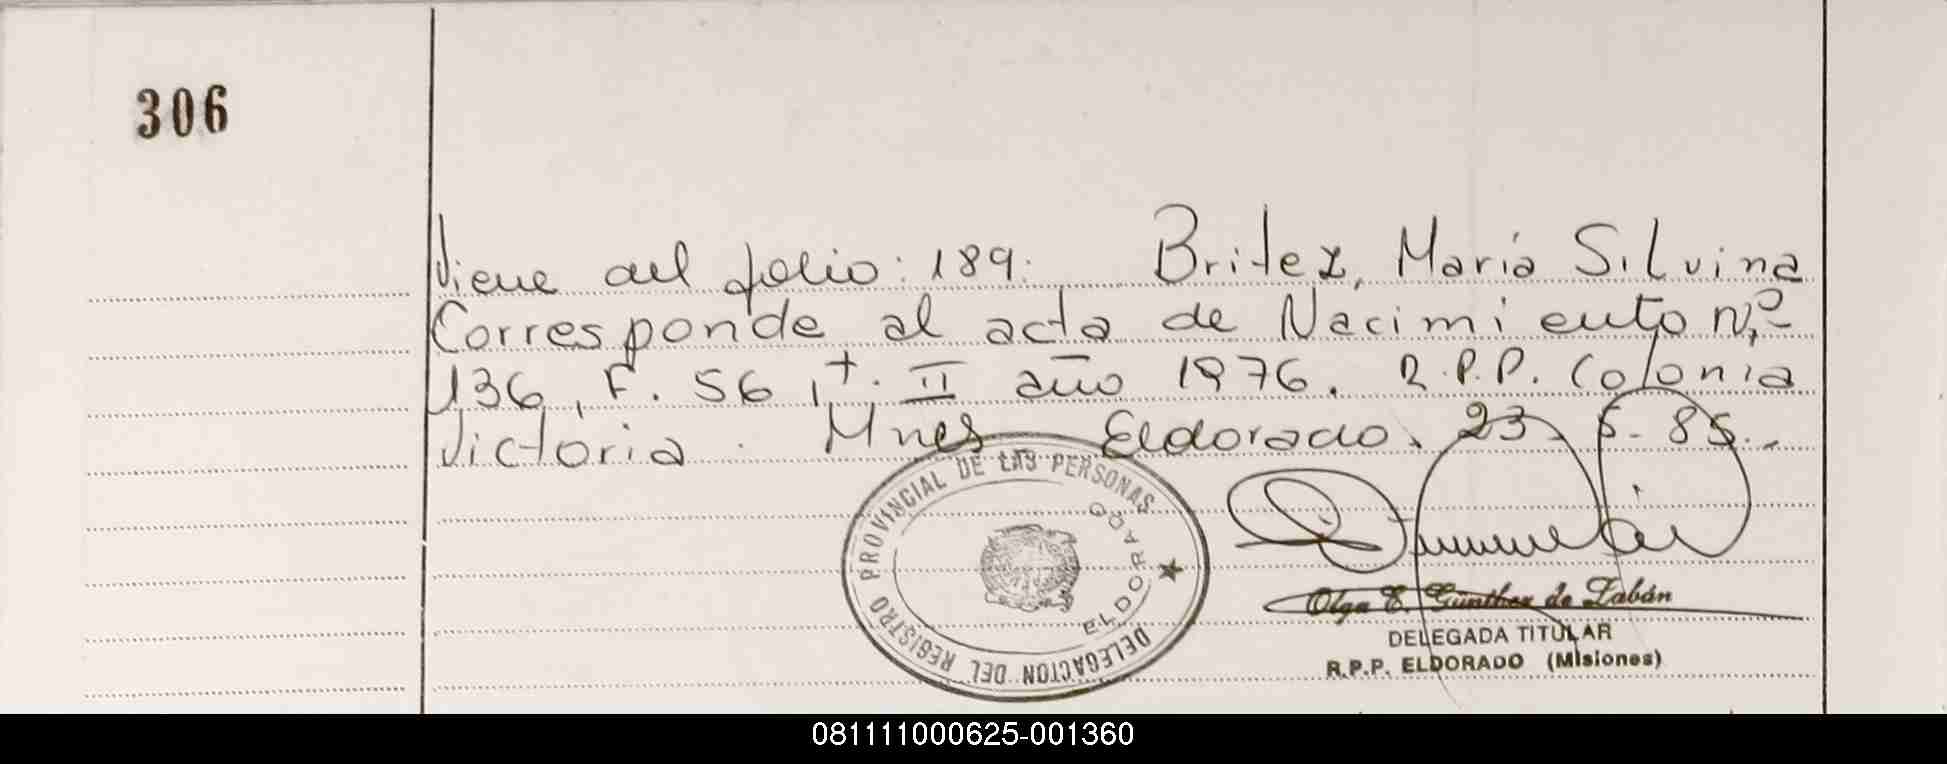 306
Viene del folio: 189. Britez, María Silvina
Corresponde al acta de Nacimiento Nº
136, F. 56, t. II año 1976. R.P.P. Colonia
Victoria. Mnes Eldorado. 23-5-85.-
DELEGACION DEL REGISTRO PROVINCIAL DE LAS PERSONAS
ELDORADO
Olga E. Günther de Zabán
DELEGADA TITULAR
R.P.P. ELDORADO (Misiones)
081111000625-001360